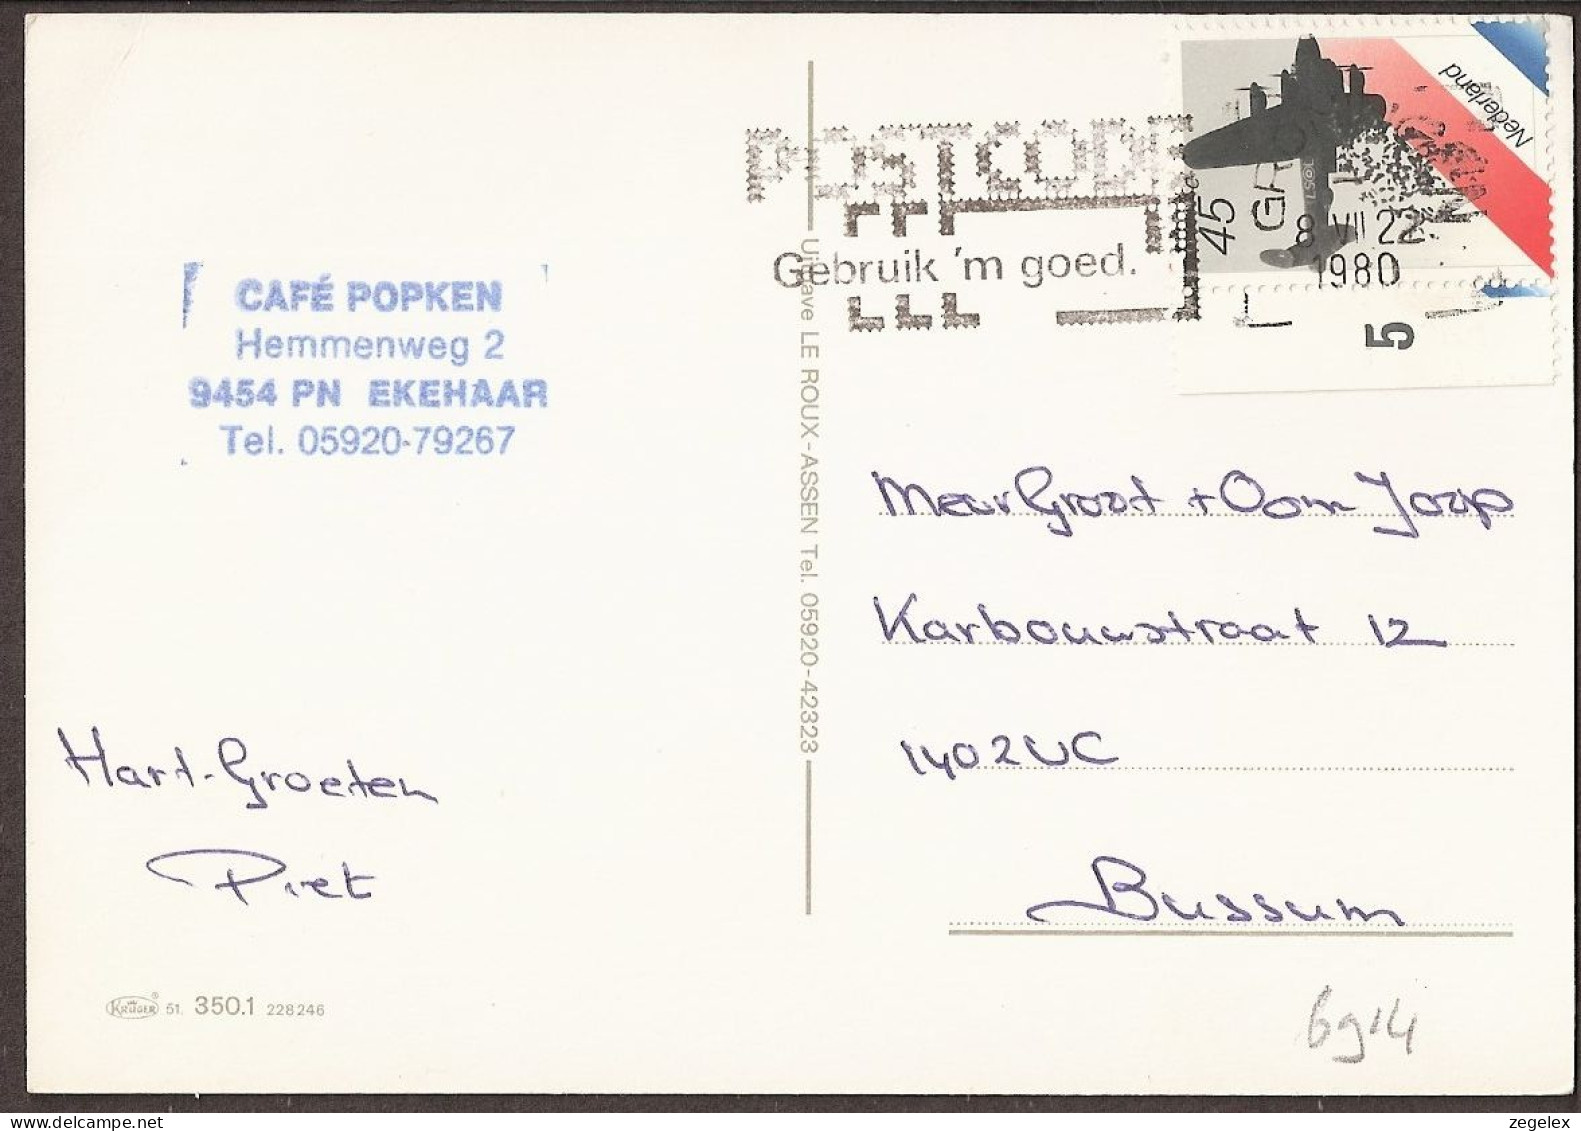 POSTCODE
Gebruik 'm goed.
Nederland
45
GRONINGEN
8 VII 22
1980
5
CAFÉ POPKEN
Hemmenweg 2
9454 PN EKEHAAR
Tel. 05920-79267
Uitgave LE ROUX - ASSEN Tel. 05920-42323
Mevr Groot + Oom Joop
Karbouwstraat 12
1402VC
Bussum
Hart-Groeten
Piet
KRÜGER® 51. 350.1 228246
bg14
zegelex